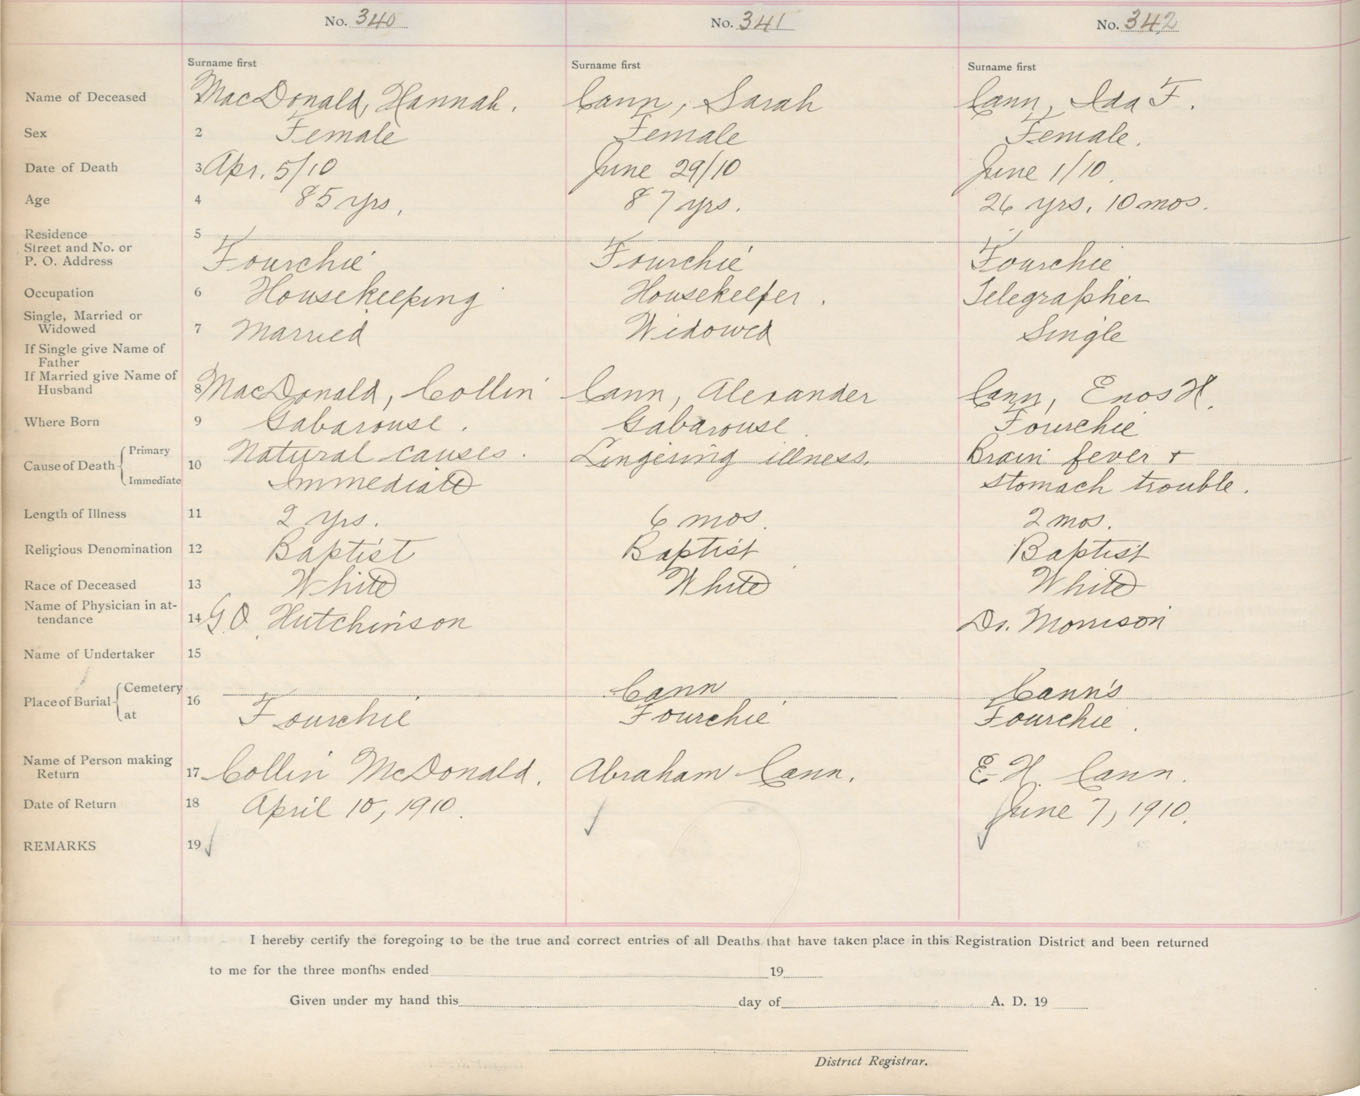 No. 340 No. 341 No. 342
Surname first Surname first Surname first
Name of Deceased MacDonald, Hannah. Cann, Sarah Cann, Ida F.
Sex 2 Female Female Female.
Date of Death 3 Apr. 5/10 June 29/10 June 1/10.
Age 4 85 yrs. 87 yrs. 26 yrs. 10 mos.
Residence 5
Street and No. or
P. O. Address Fourchie Fourchie Fourchie
Occupation 6 Housekeeping Housekeeper. Telegrapher
Single, Married or
Widowed 7 Married Widowed Single
If Single give Name of
Father
If Married give Name of
Husband 8 MacDonald, Collin Cann, Alexander Cann, Enos H.
Where Born 9 Gabarouse. Gabarouse Fourchie
Cause of Death Primary 10 Natural causes. Lingering illness. Brain fever +
Immediate Immediate stomach trouble.
Length of Illness 11 2 yrs. 6 mos. 2 mos.
Religious Denomination 12 Baptist Baptist Baptist
Race of Deceased 13 White White White
Name of Physician in at-
tendance 14 G.O. Hutchinson Dr. Morrison
Name of Undertaker 15
Place of Burial Cemetery 16 Cann Cann's
at Fourchie Fourchie Fourchie.
Name of Person making
Return 17 Collin McDonald. Abraham Cann. E. H. Cann.
Date of Return 18 April 10, 1910. June 7, 1910.
REMARKS 19
I hereby certify the foregoing to be the true and correct entries of all Deaths that have taken place in this Registration District and been returned
to me for the three months ended 19
Given under my hand this day of A. D. 19
District Registrar.